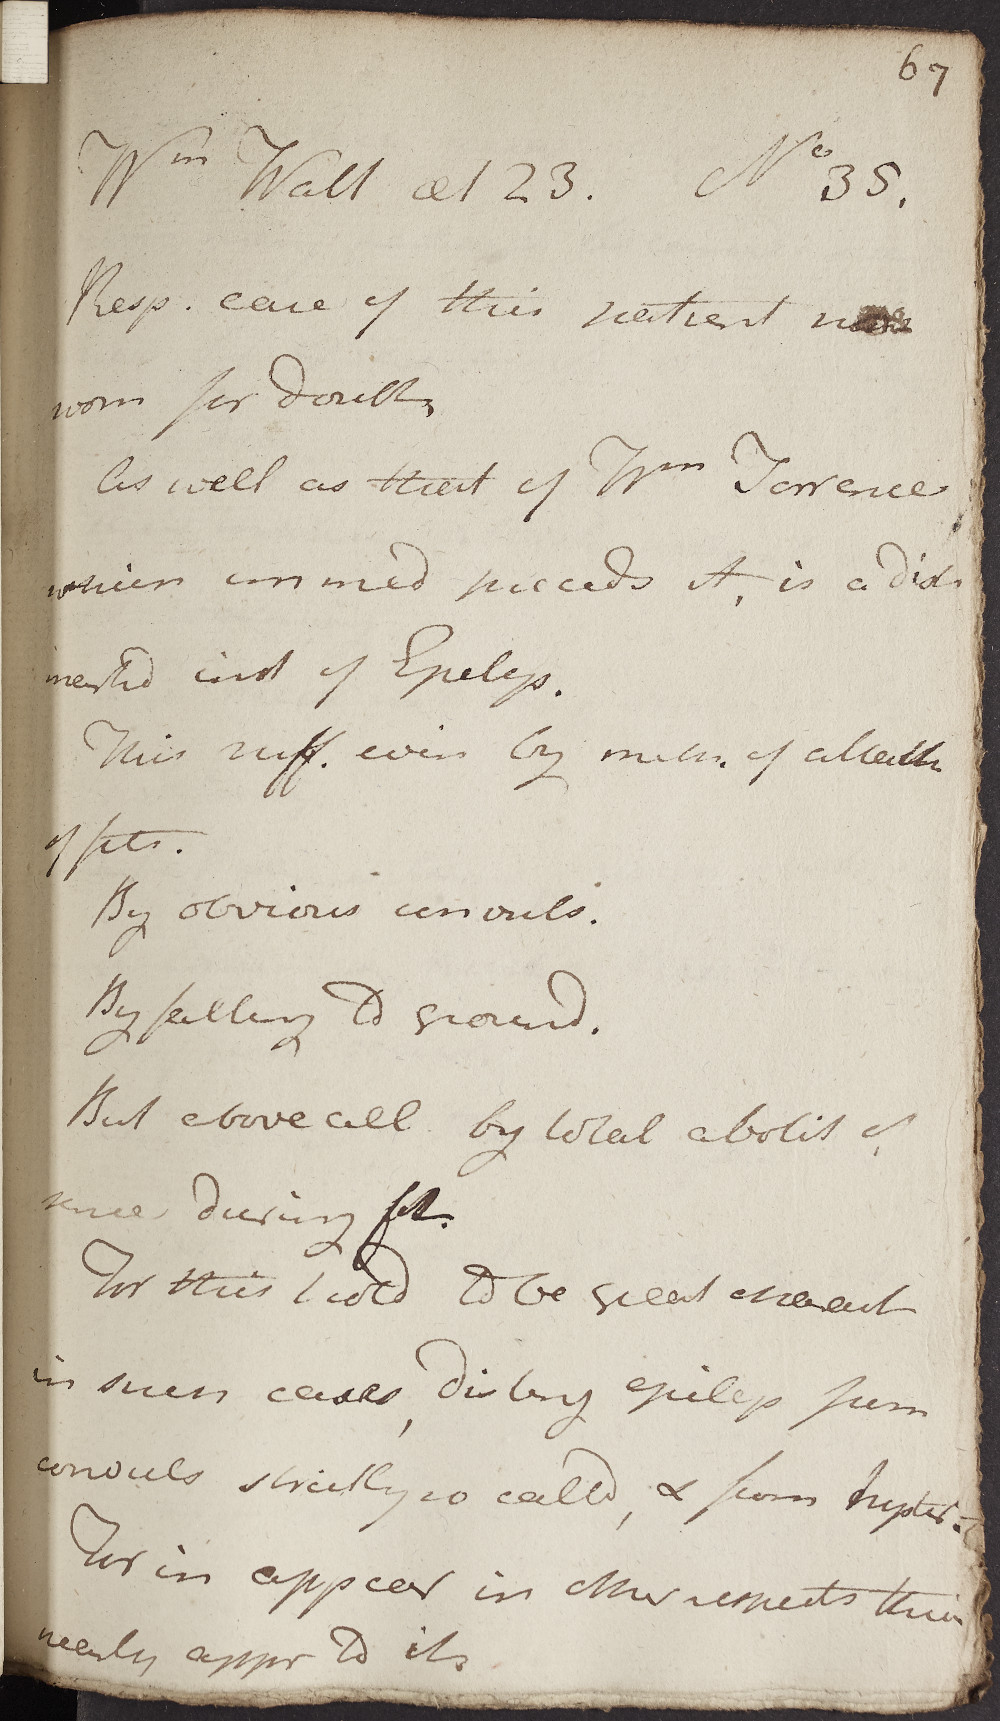 67
Wm Watt æt 23. No 35.
Resp. case of this patient none
room for doubt,
As well as that of Wm Torrence
which immed preceeds it, is a dist
inst of Epileps.
This suff. evin by mere attack
of fits.
By obvious convuls.
By falling to ground.
But above all by total abolit of
sense during fit.
For this I hold to be great charact
in such cases, disting epileps from
convuls strictly so calld, & from hyster.
For in appear in other respects these
nearly appr to it,